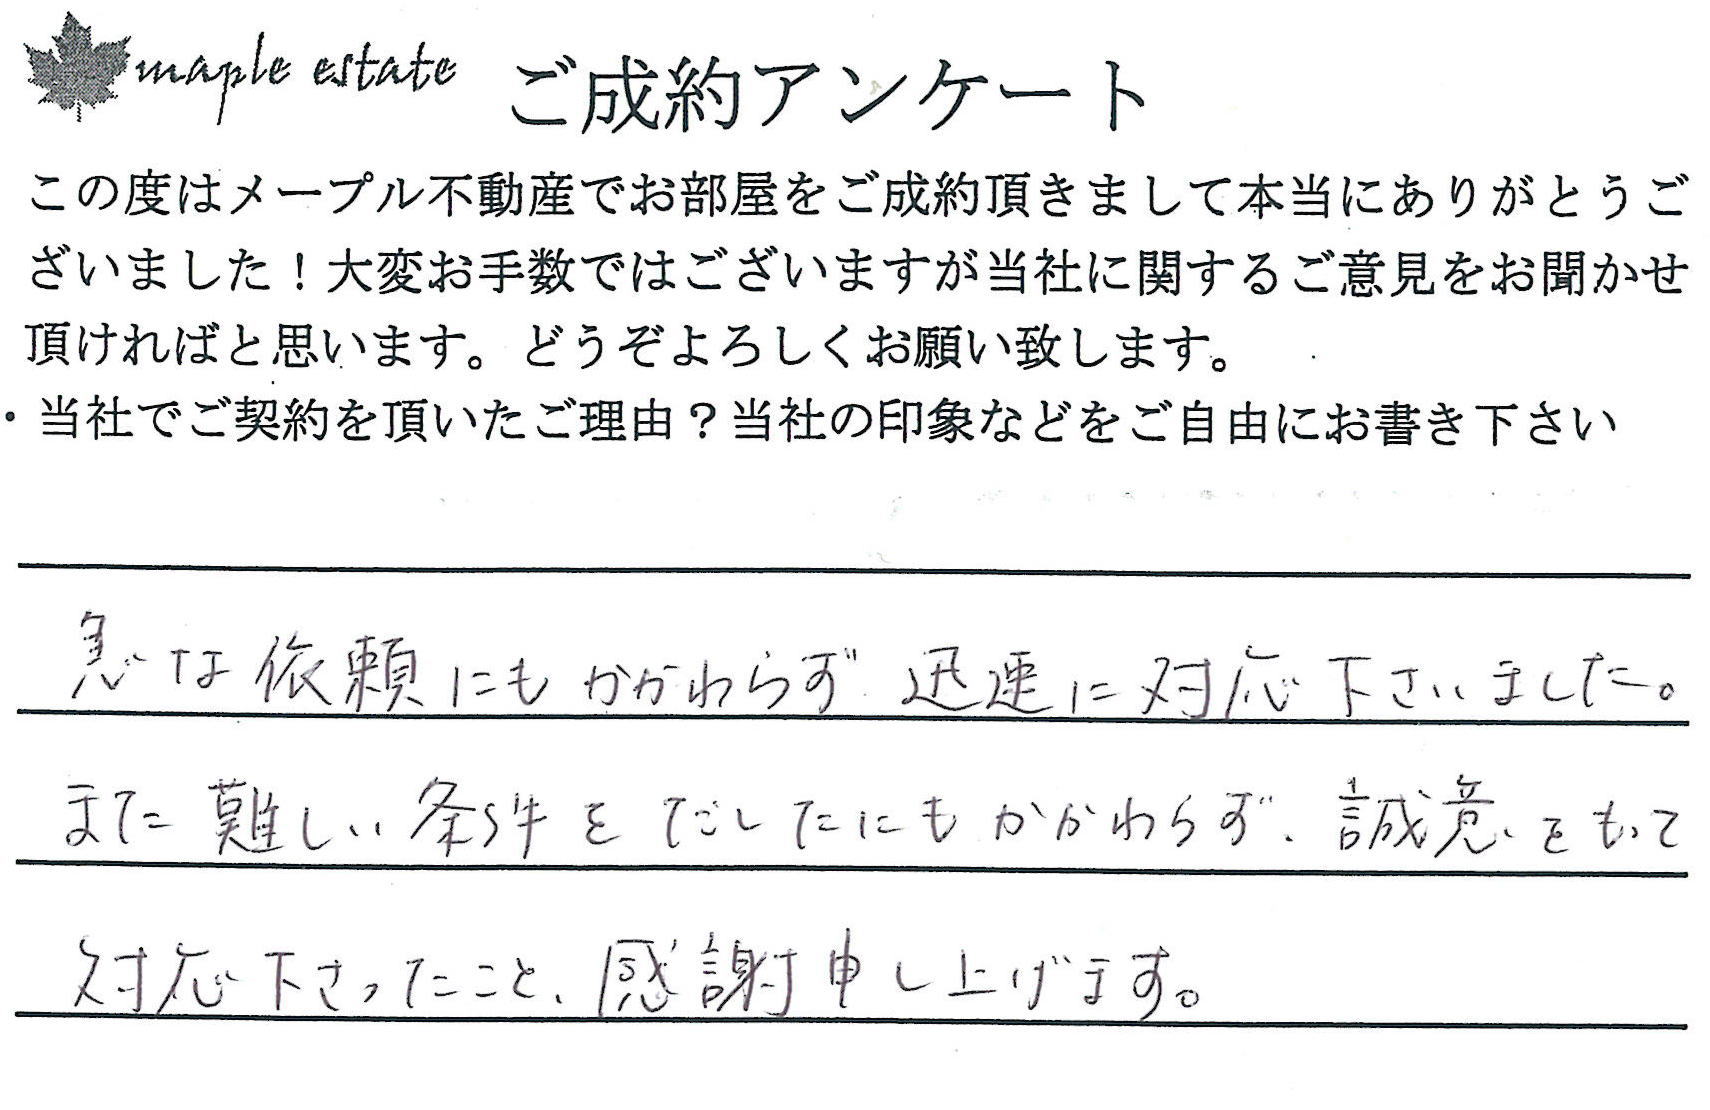 maple estate ご成約アンケート
この度はメープル不動産でお部屋をご成約頂きまして本当にありがとうご
ざいました！大変お手数ではございますが当社に関するご意見をお聞かせ
頂ければと思います。どうぞよろしくお願い致します。
・当社でご契約を頂いたご理由？当社の印象などをご自由にお書き下さい
急な依頼にもかかわらず迅速に対応下さいました。
また難しい条件をだしたにもかかわらず、誠意をもって
対応下さったこと、感謝申し上げます。